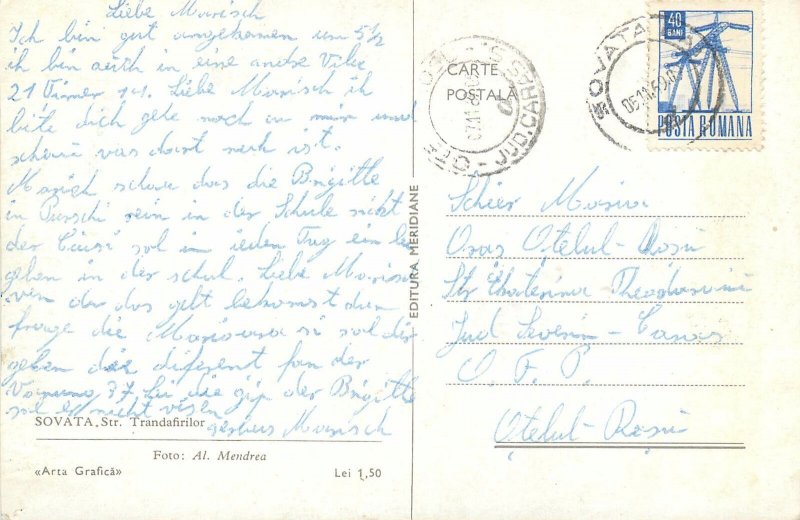 Liebe Marisch
Ich bin gut angekomen um 5½
ich bin auch in eine andre Vile
21 Zimer 141. Liebe Marisch ih
bite dich gehe noch in min und
schau vas dort noch ist.
Marich schau das die Brigitte
in Parschi rein in der Schule nicht
der Causi sol in ieden Tag ein
gehen in der schul. Liebe Marisch
ven du das gelt bekomst dan
frage die Marioara si sol dir
geben die diferent fon der
die gip der Brigitte
sol es nicht visen
Marisch
SOVATA. Str. Trandafirilor
Foto: Al. Mendrea
«Arta Grafică»
Lei 1,50
EDITURA MERIDIANE
CARTE
POSTALĂ
JUD. CARAS
SOVATA
40
BANI
POSTA ROMANA
Schier Maria
Oras Otelul-Rosu
Str Ekaterina Theodoroiu
Jud Severin-Caras
O. F. P.
Otelul-Rosu